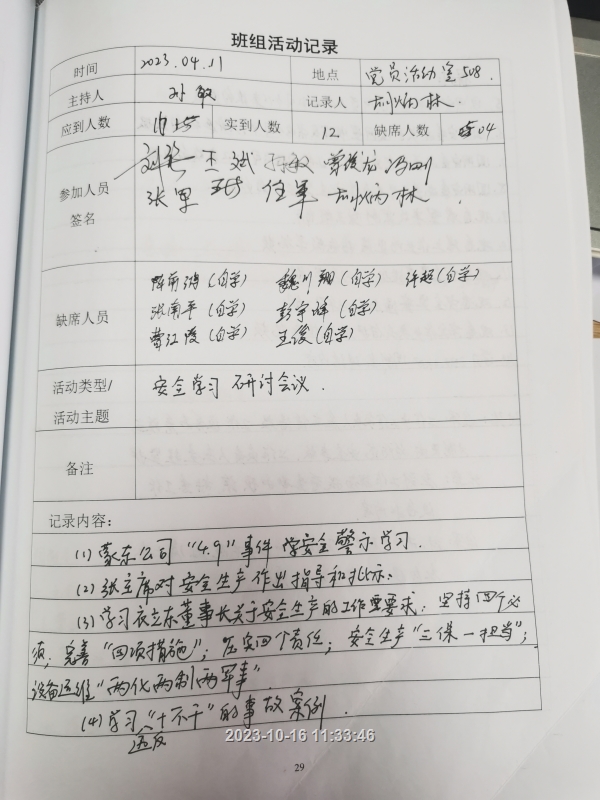 班组活动记录
时间 2023.04.11 地点 党员活动室508.
主持人 孙敏 记录人 炳林.
应到人数 实到人数 12 缺席人数 04
王斌 孙敏
参加人员
张军 任军 炳林
签名
(自学) 魏川翔(自学) 许超(自学)
洪南平(自学) 彭宇峰(自学)
缺席人员
曹红霞(自学) 王俊(自学)
活动类型/ 安全学习 研讨会议.
活动主题
备注
记录内容:
(1) 蒙东公司"4.9"事件 学安全警示学习.
(2) 张主席对安全生产作出指导和批示.
(3) 学习衣立东董事长关于安全生产的工作重要求: 坚持四个必
须, 完善"四项措施"; 压实四个责任; 安全生产"三保一担当";
设备运维"两化两制两军事"
(4) 学习"十不干"的事故案例.
违反
2023-10-16 11:33:46
29